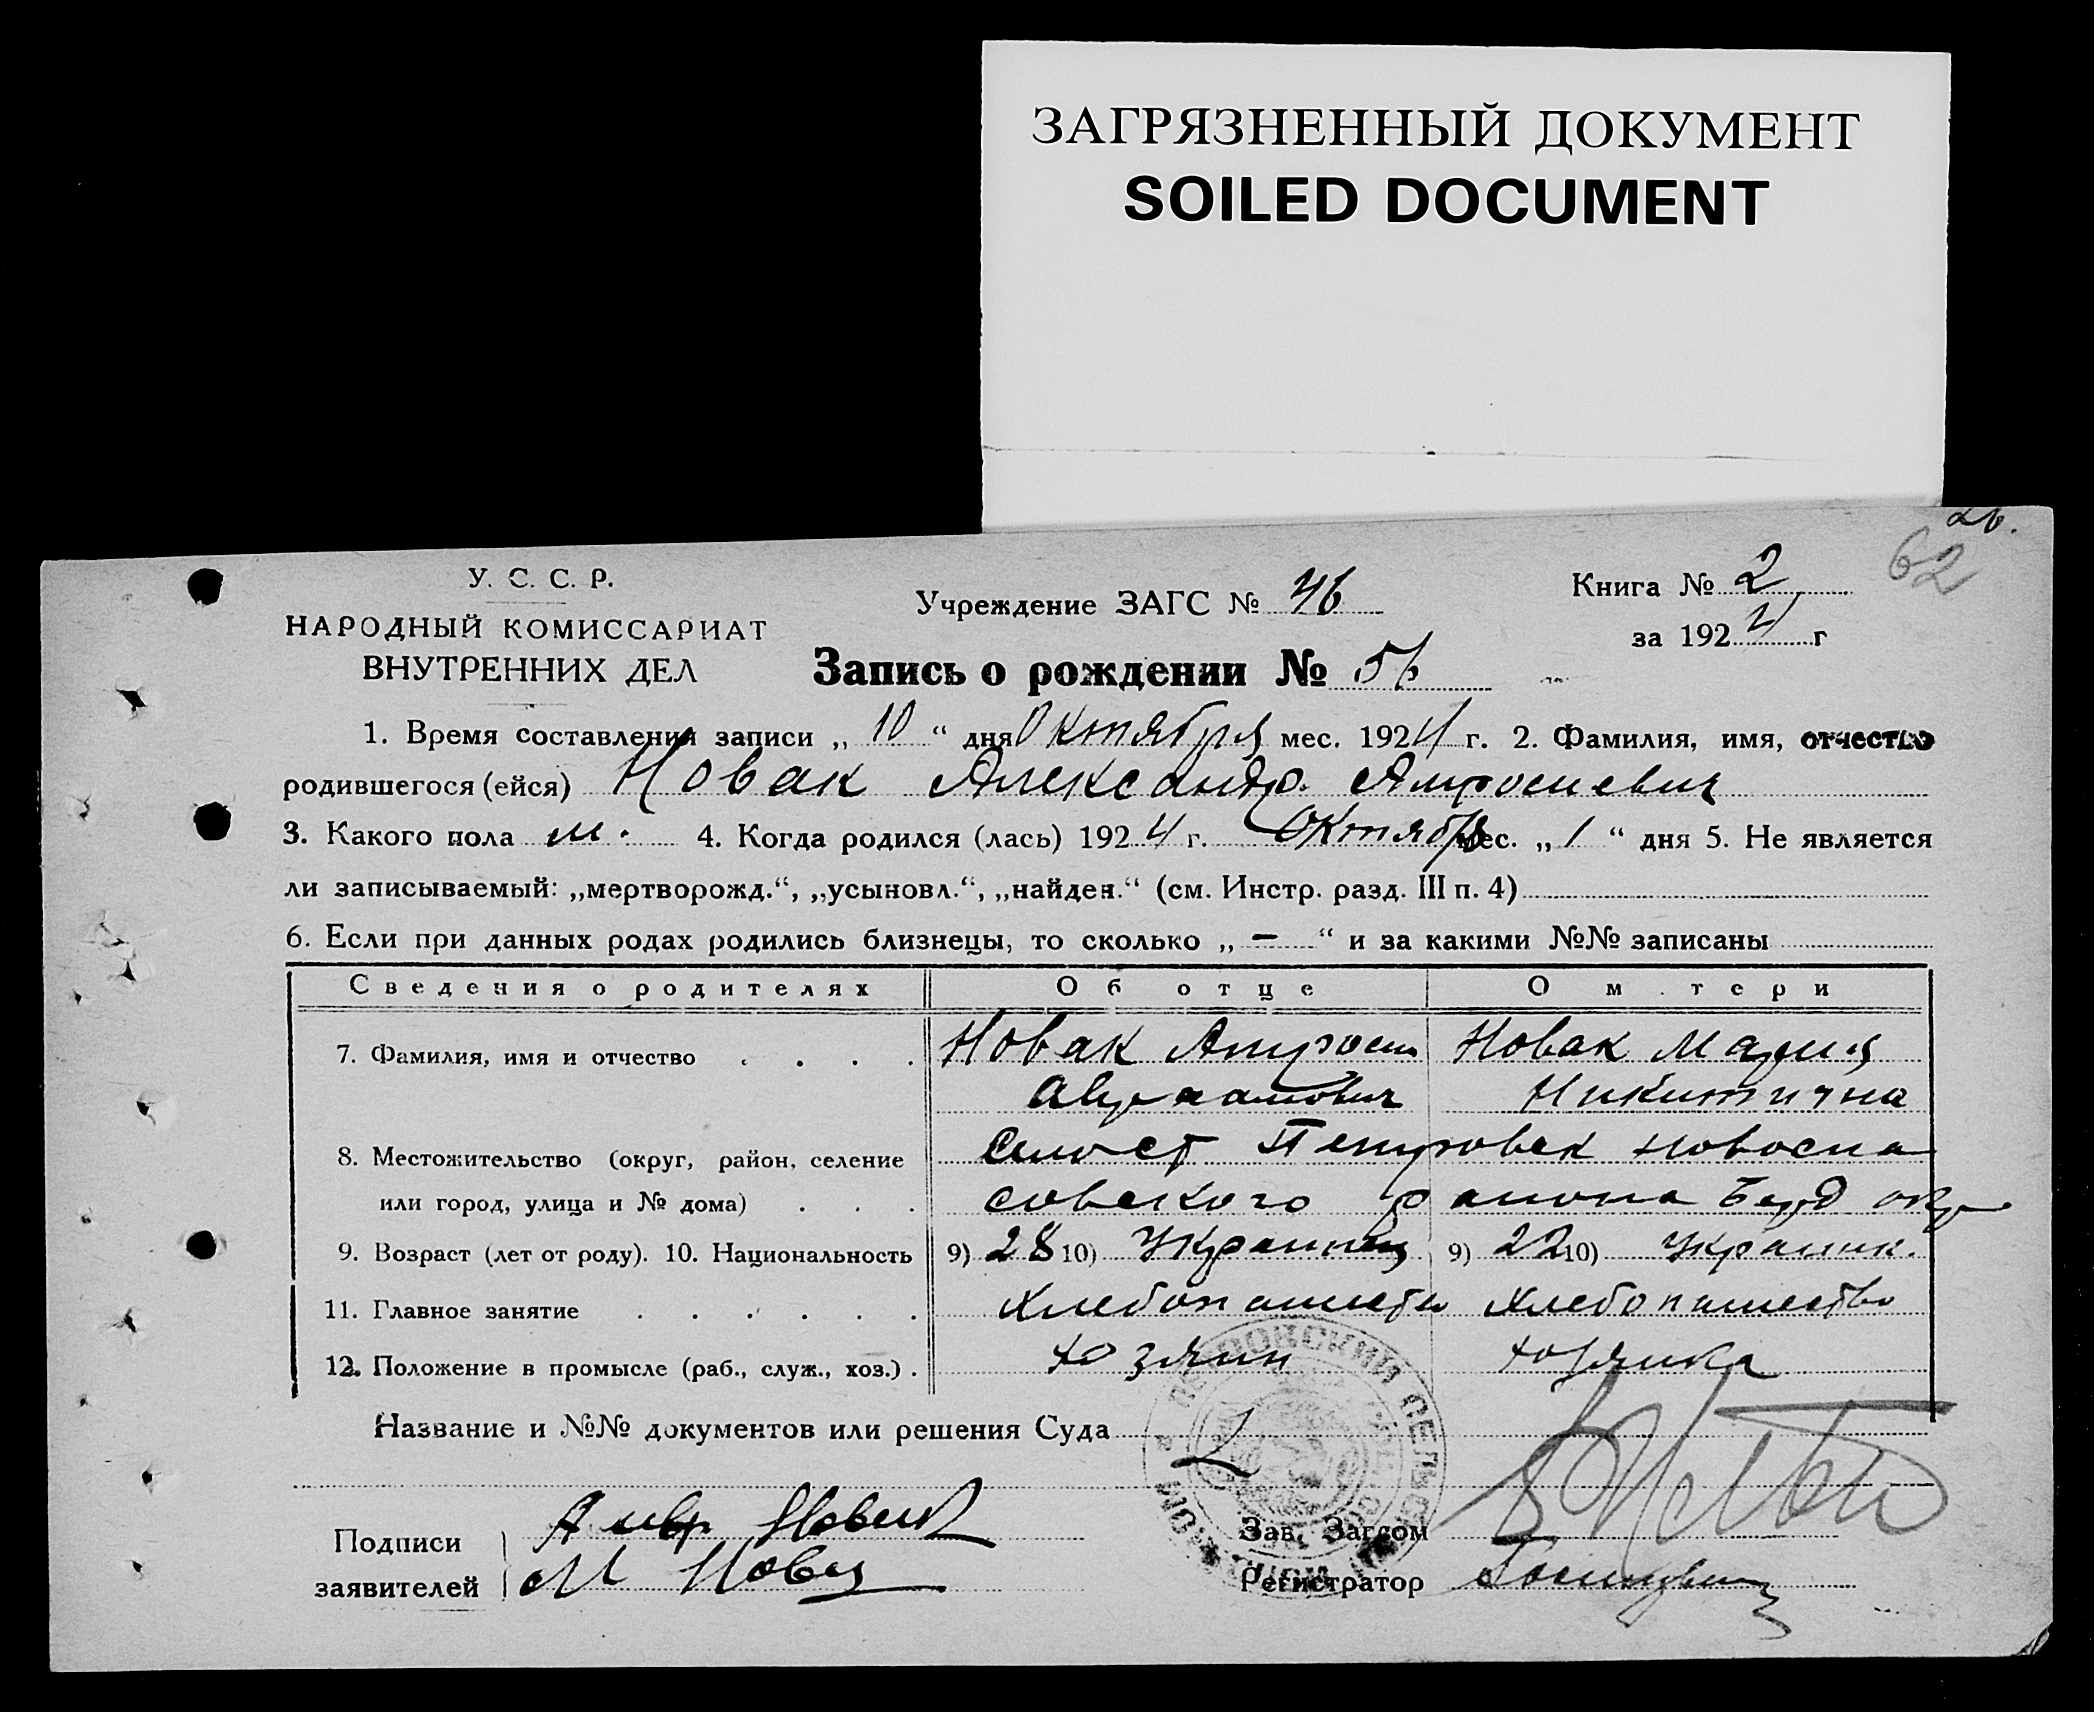 ЗАГРЯЗНЕННЫЙ ДОКУМЕНТ
SOILED DOCUMENT
62
У. С. С. Р.
НАРОДНЫЙ КОМИССАРИАТ
ВНУТРЕННИХ ДЕЛ
Учреждение ЗАГС № 46
Книга № 2
за 1924 г
Запись о рождении № 56
1. Время составления записи „ 10 “ дня Октября мес. 1924 г. 2. Фамилия, имя, отчество
родившегося (ейся) Новак Александр Амросиевич
3. Какого пола м. 4. Когда родился (лась) 1924 г. Октября мес. „ 1 “ дня 5. Не является
ли записываемый: „мертворожд.“, „усыновл.“, „найден.“ (см. Инстр. разд. III п. 4)
6. Если при данных родах родились близнецы, то сколько „ — “ и за какими №№ записаны
Сведения о родителях Об отце О м тери
7. Фамилия, имя и отчество . . . . Новак Амросий Новак Мария
Аврамович Никитична
8. Местожительство (округ, район, селение Петровск Новоспа
или город, улица и № дома) . . . совского района Берд окр
9. Возраст (лет от роду). 10. Национальность 9) 28 10) Украинец 9) 22 10) Украинк.
11. Главное занятие . . . . . . Хлебопашество Хлебопашество
12. Положение в промысле (раб., служ., хоз.) . Хозяин Хозяика
Название и №№ документов или решения Суда
Подписи Новак
заявителей М Новак
Зав. Загсом
Регистратор